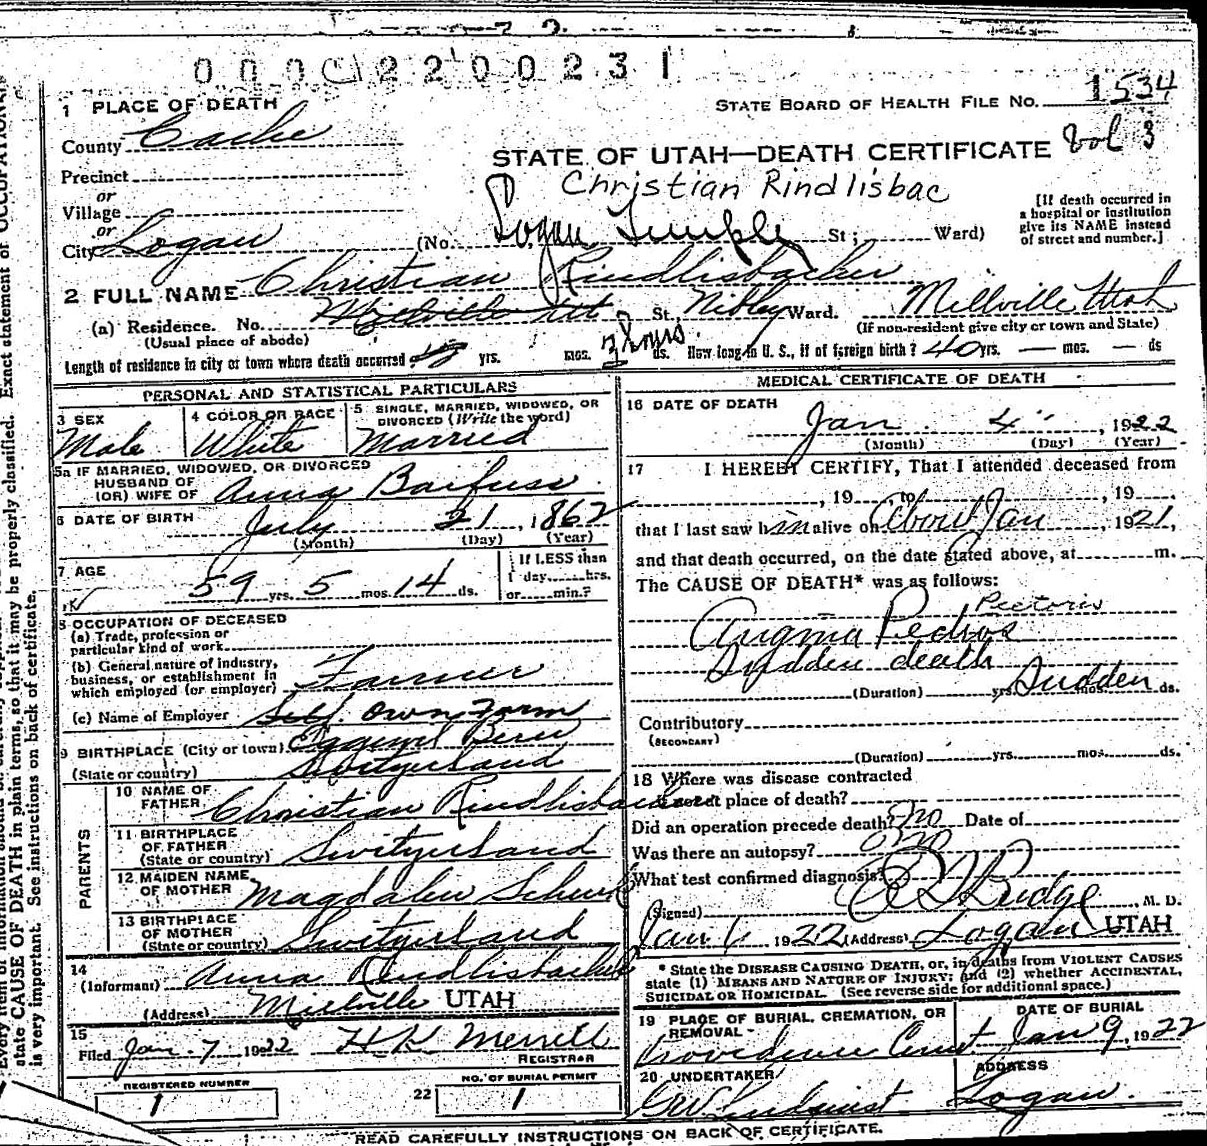 000C2200231
1 PLACE OF DEATH
STATE BOARD OF HEALTH FILE NO. 1534
County Cache
Vol 3
STATE OF UTAH—DEATH CERTIFICATE
Precinct
Christian Rindlisbac
or
Village
or
City Logan (No. Logan Temple St; Ward)
[If death occurred in
a hospital or institution
give its NAME instead
of street and number.]
2 FULL NAME Christian Rindlisbacher
(a) Residence. No. St. Nibley Ward. Millville Utah
(Usual place of abode)
(If non-resident give city or town and State)
Length of residence in city or town where death occurred yrs. mos. ds. How long in U. S., if of foreign birth? 40 yrs. — mos. — ds
hours
PERSONAL AND STATISTICAL PARTICULARS
3 SEX
Male
4 COLOR OR RACE
White
5 SINGLE, MARRIED, WIDOWED, OR
DIVORCED (Write the word)
Married
5a IF MARRIED, WIDOWED, OR DIVORCED
HUSBAND OF
(OR) WIFE OF Anna Barfuss
6 DATE OF BIRTH
July 21, 1862
(Month) (Day) (Year)
7 AGE
59 yrs. 5 mos. 14 ds.
If LESS than
1 day hrs.
or min.?
8 OCCUPATION OF DECEASED
(a) Trade, profession or
particular kind of work
(b) General nature of industry,
business, or establishment in
which employed (or employer) Farmer
(c) Name of Employer Self. Own Farm
9 BIRTHPLACE (City or town) Bern
(State or country) Switzerland
PARENTS
10 NAME OF
FATHER Christian Rindlisbacher
11 BIRTHPLACE
OF FATHER
(State or country) Switzerland
12 MAIDEN NAME
OF MOTHER Magdalen Schenk
13 BIRTHPLACE
OF MOTHER
(State or country) Switzerland
14
(Informant) Anna Rindlisbacher
(Address) Millville UTAH
15
Filed Jan. 7 1922 H K Merrill
REGISTRAR
REGISTERED NUMBER
1
22
NO. OF BURIAL PERMIT
1
MEDICAL CERTIFICATE OF DEATH
16 DATE OF DEATH
Jan 4" , 1922
(Month) (Day) (Year)
17 I HEREBY CERTIFY, That I attended deceased from
, 19 to , 19
that I last saw him alive on About Jan , 1921,
and that death occurred, on the date stated above, at m.
The CAUSE OF DEATH* was as follows:
Pectoris
Angina Pectros
Sudden death
(Duration) yrs. Sudden mos. ds.
Contributory
(SECONDARY)
(Duration) yrs. mos. ds.
18 Where was disease contracted
if not at place of death?
Did an operation precede death? no Date of
Was there an autopsy? no
What test confirmed diagnosis?
(Signed) Budge , M. D.
Jan 6 1922 (Address) Logan UTAH
* State the DISEASE CAUSING DEATH, or, in deaths from VIOLENT CAUSES
state (1) MEANS AND NATURE OF INJURY; and (2) whether ACCIDENTAL,
SUICIDAL OR HOMICIDAL. (See reverse side for additional space.)
19 PLACE OF BURIAL, CREMATION, OR
REMOVAL
Providence Cemet
DATE OF BURIAL
Jan 9, 1922
20 UNDERTAKER
GW Lindquist
ADDRESS
Logan.
READ CAREFULLY INSTRUCTIONS ON BACK OF CERTIFICATE.
state CAUSE OF DEATH in plain terms, so that it may be properly classified. Exact statement of OCCUPATION
is very important. See instructions on back of certificate.